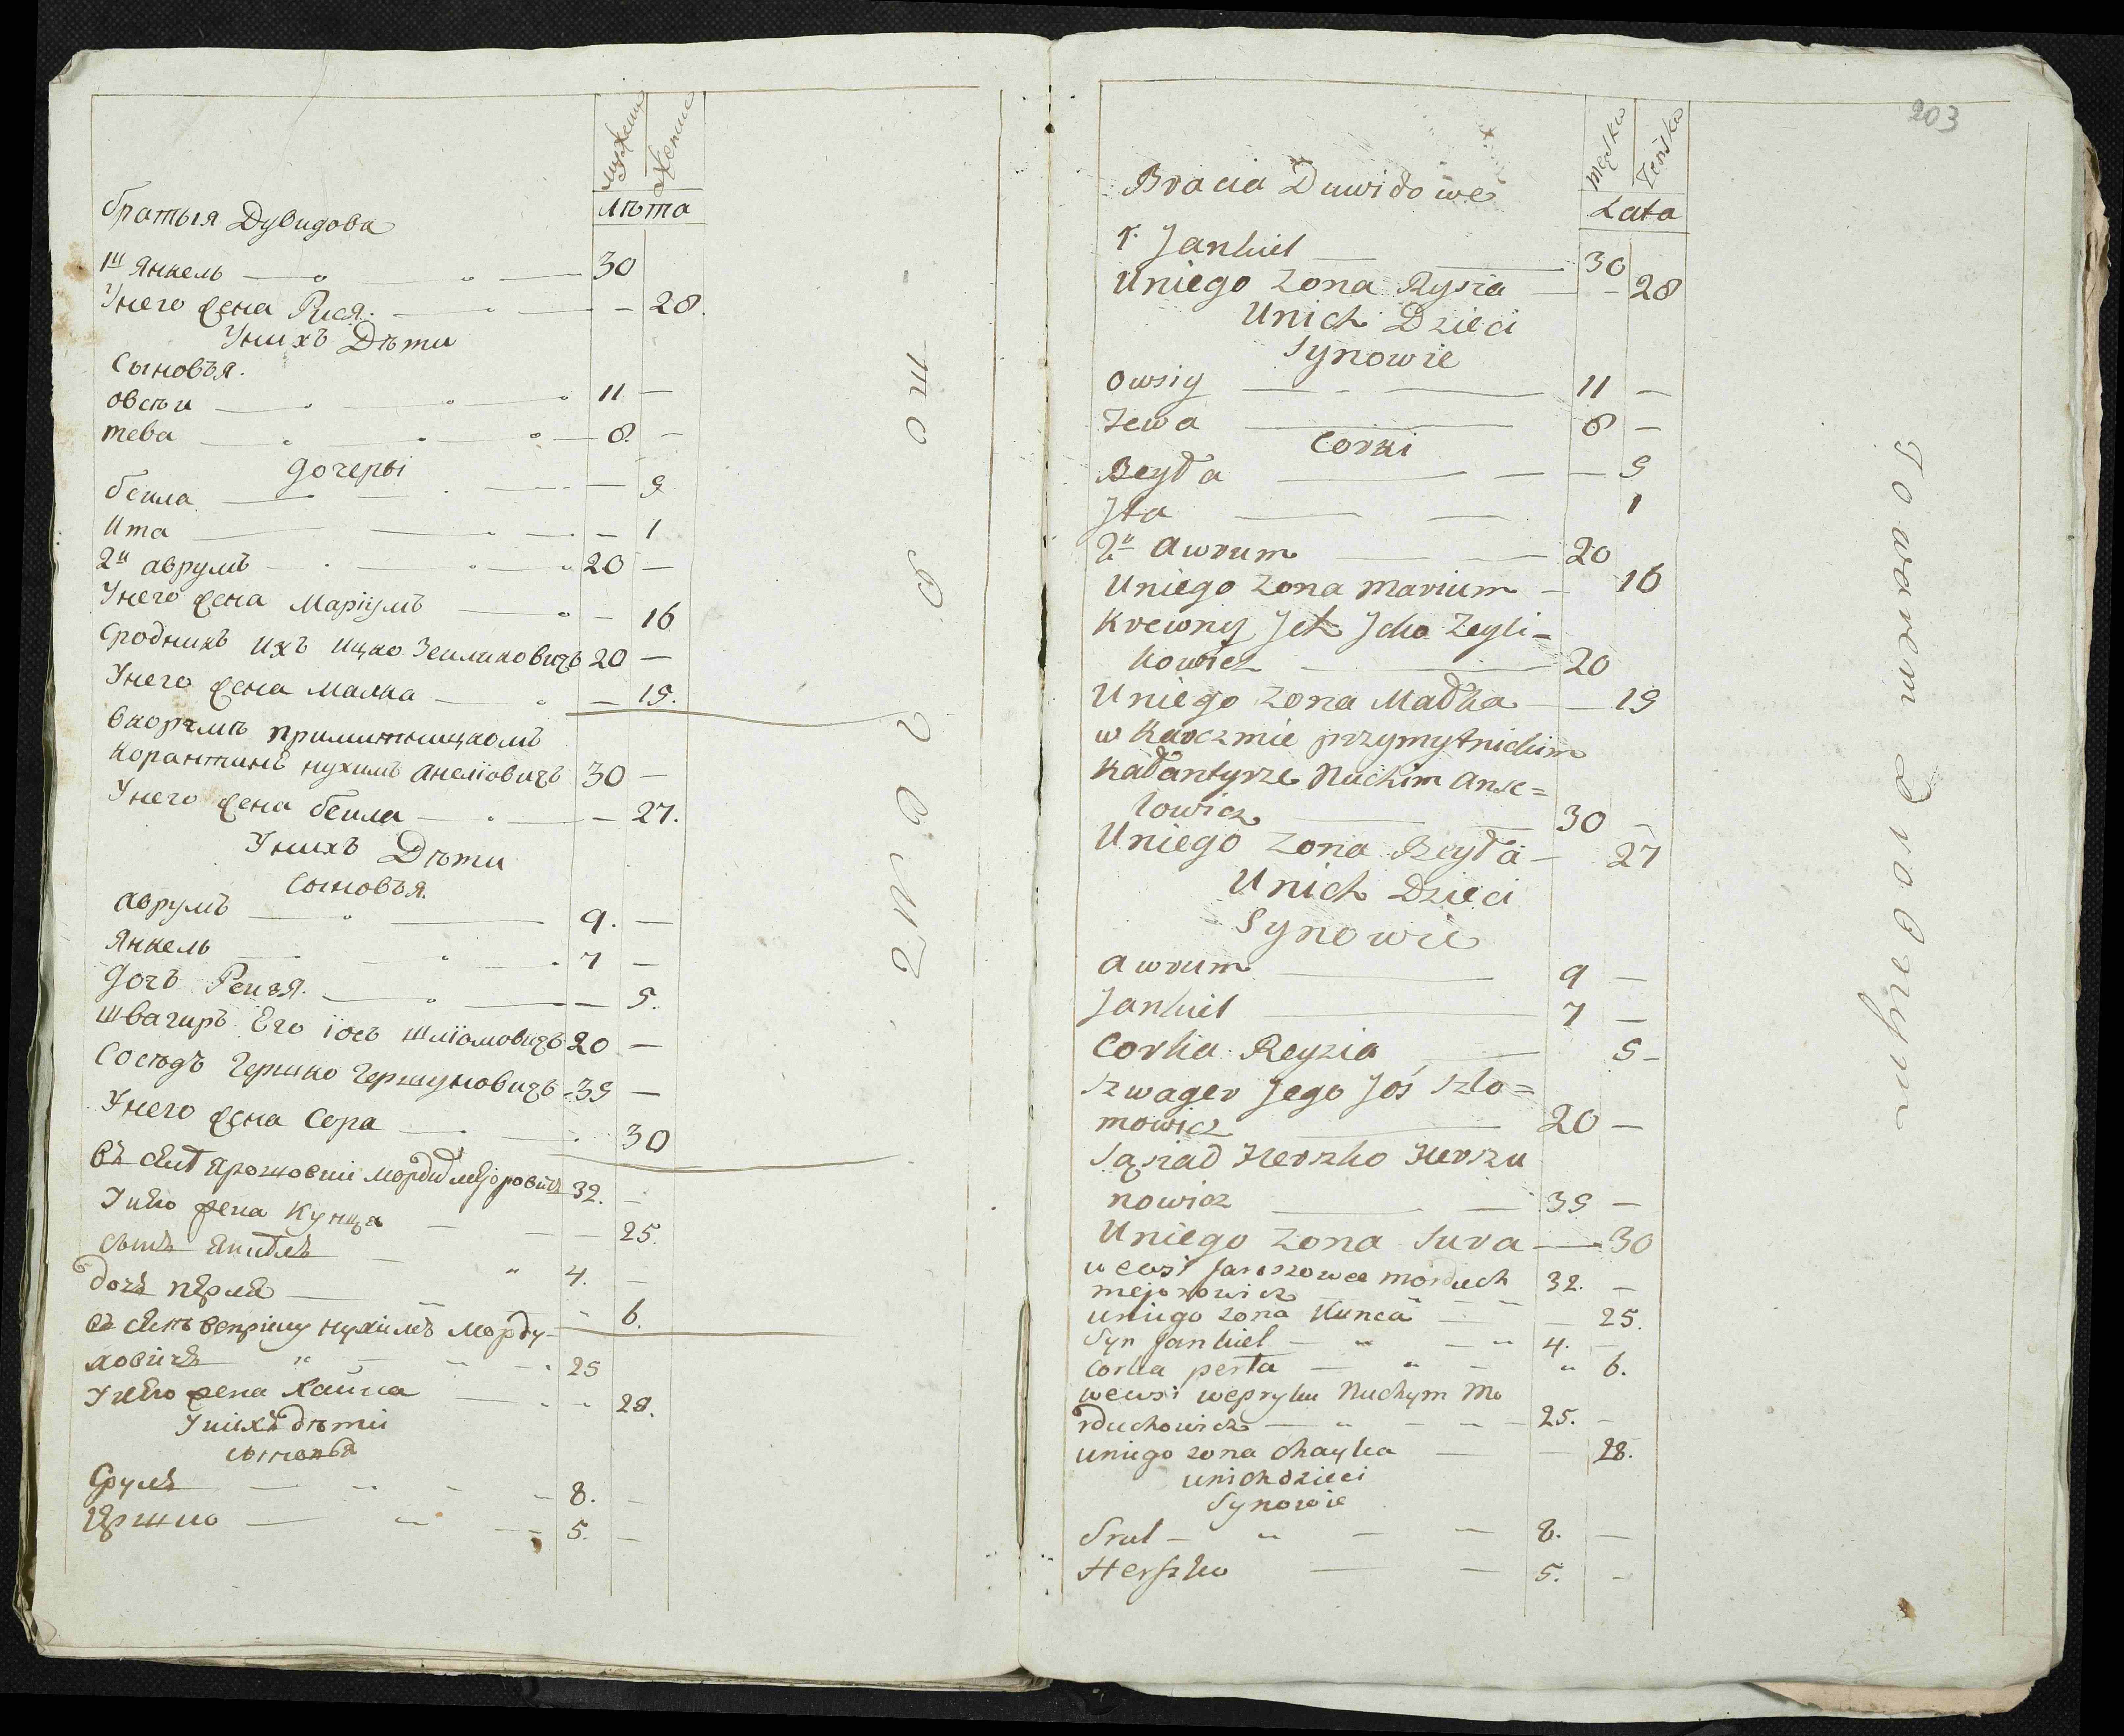 мужеск
женска
лѣта
братья Дувидова
1й Янкель 30
Унего жена Рися 28.
Унихъ Дѣти
Сыновья.
овсѣи 11
тева 8.
дочеры
беила 9
Ита 1
2й аврумъ 20
Унего жена Маріумъ 16
Сродникъ ихъ ицко Зеиликовичъ 20
Унего жена малка 19.
вкорчмѣ примитницкомъ
корантинѣ нухимъ анелiовичъ 30
Унего жена беила 27.
Унихъ Дѣти
Сыновья.
аврумъ 9.
Янкель 7
дочъ Реизя. 5.
швагиръ Его iосъ шлiомовичъ 20
Сосѣдъ Гершко Гершуновичъ 39
Унего жена Сора 30
въ селѣ Ярошовки мордух меiоровичъ 32.
Унего жена Кунца 25.
сынъ Янкель 4.
дочь перля 6.
въ селѣ веприку нухимъ морду-
ховичъ 25
Унего жена хаика 28.
Унихъ дѣти
сыновья
Сруль 8.
Гершко 5.
203
męska
żeńska
Lata
Bracia Duwidowe
1. Jankiel 30
Uniego Zona Rysia 28
Unich Dzieci
Synowie
Owsiy 11
Tewa 8
Corki
Beyła 9
Jta 1
2й Awrum 20
Uniego Zona Marium 16
Krewny Jch Jcko Zeyli=
kowicz 20
Uniego Zona Małka 19
w Karczmie przymytnickim
Kałantyrze Nuchim Anse=
lowicz 30
Uniego Zona Beyła 27
Unich Dzieci
Synowie
Awrum 9
Jankiel 7
Corka Reyzia 5
Szwager Jego Joś Szlo=
mowicz 20
Sąsiad Herszko Herszu
nowicz 39
Uniego Zona Sura 30
w ewsi Jaroszowce Morduch
mejorowicz 32.
uniego zona Kunca 25.
Syn Jankiel 4.
Corka perła 6.
wewsi wepryku Nuchym Mo
rduchowicz 25.
uniego zona Chayka 28.
unich dzieci
Synowie
Srul 8.
Herszko 5.